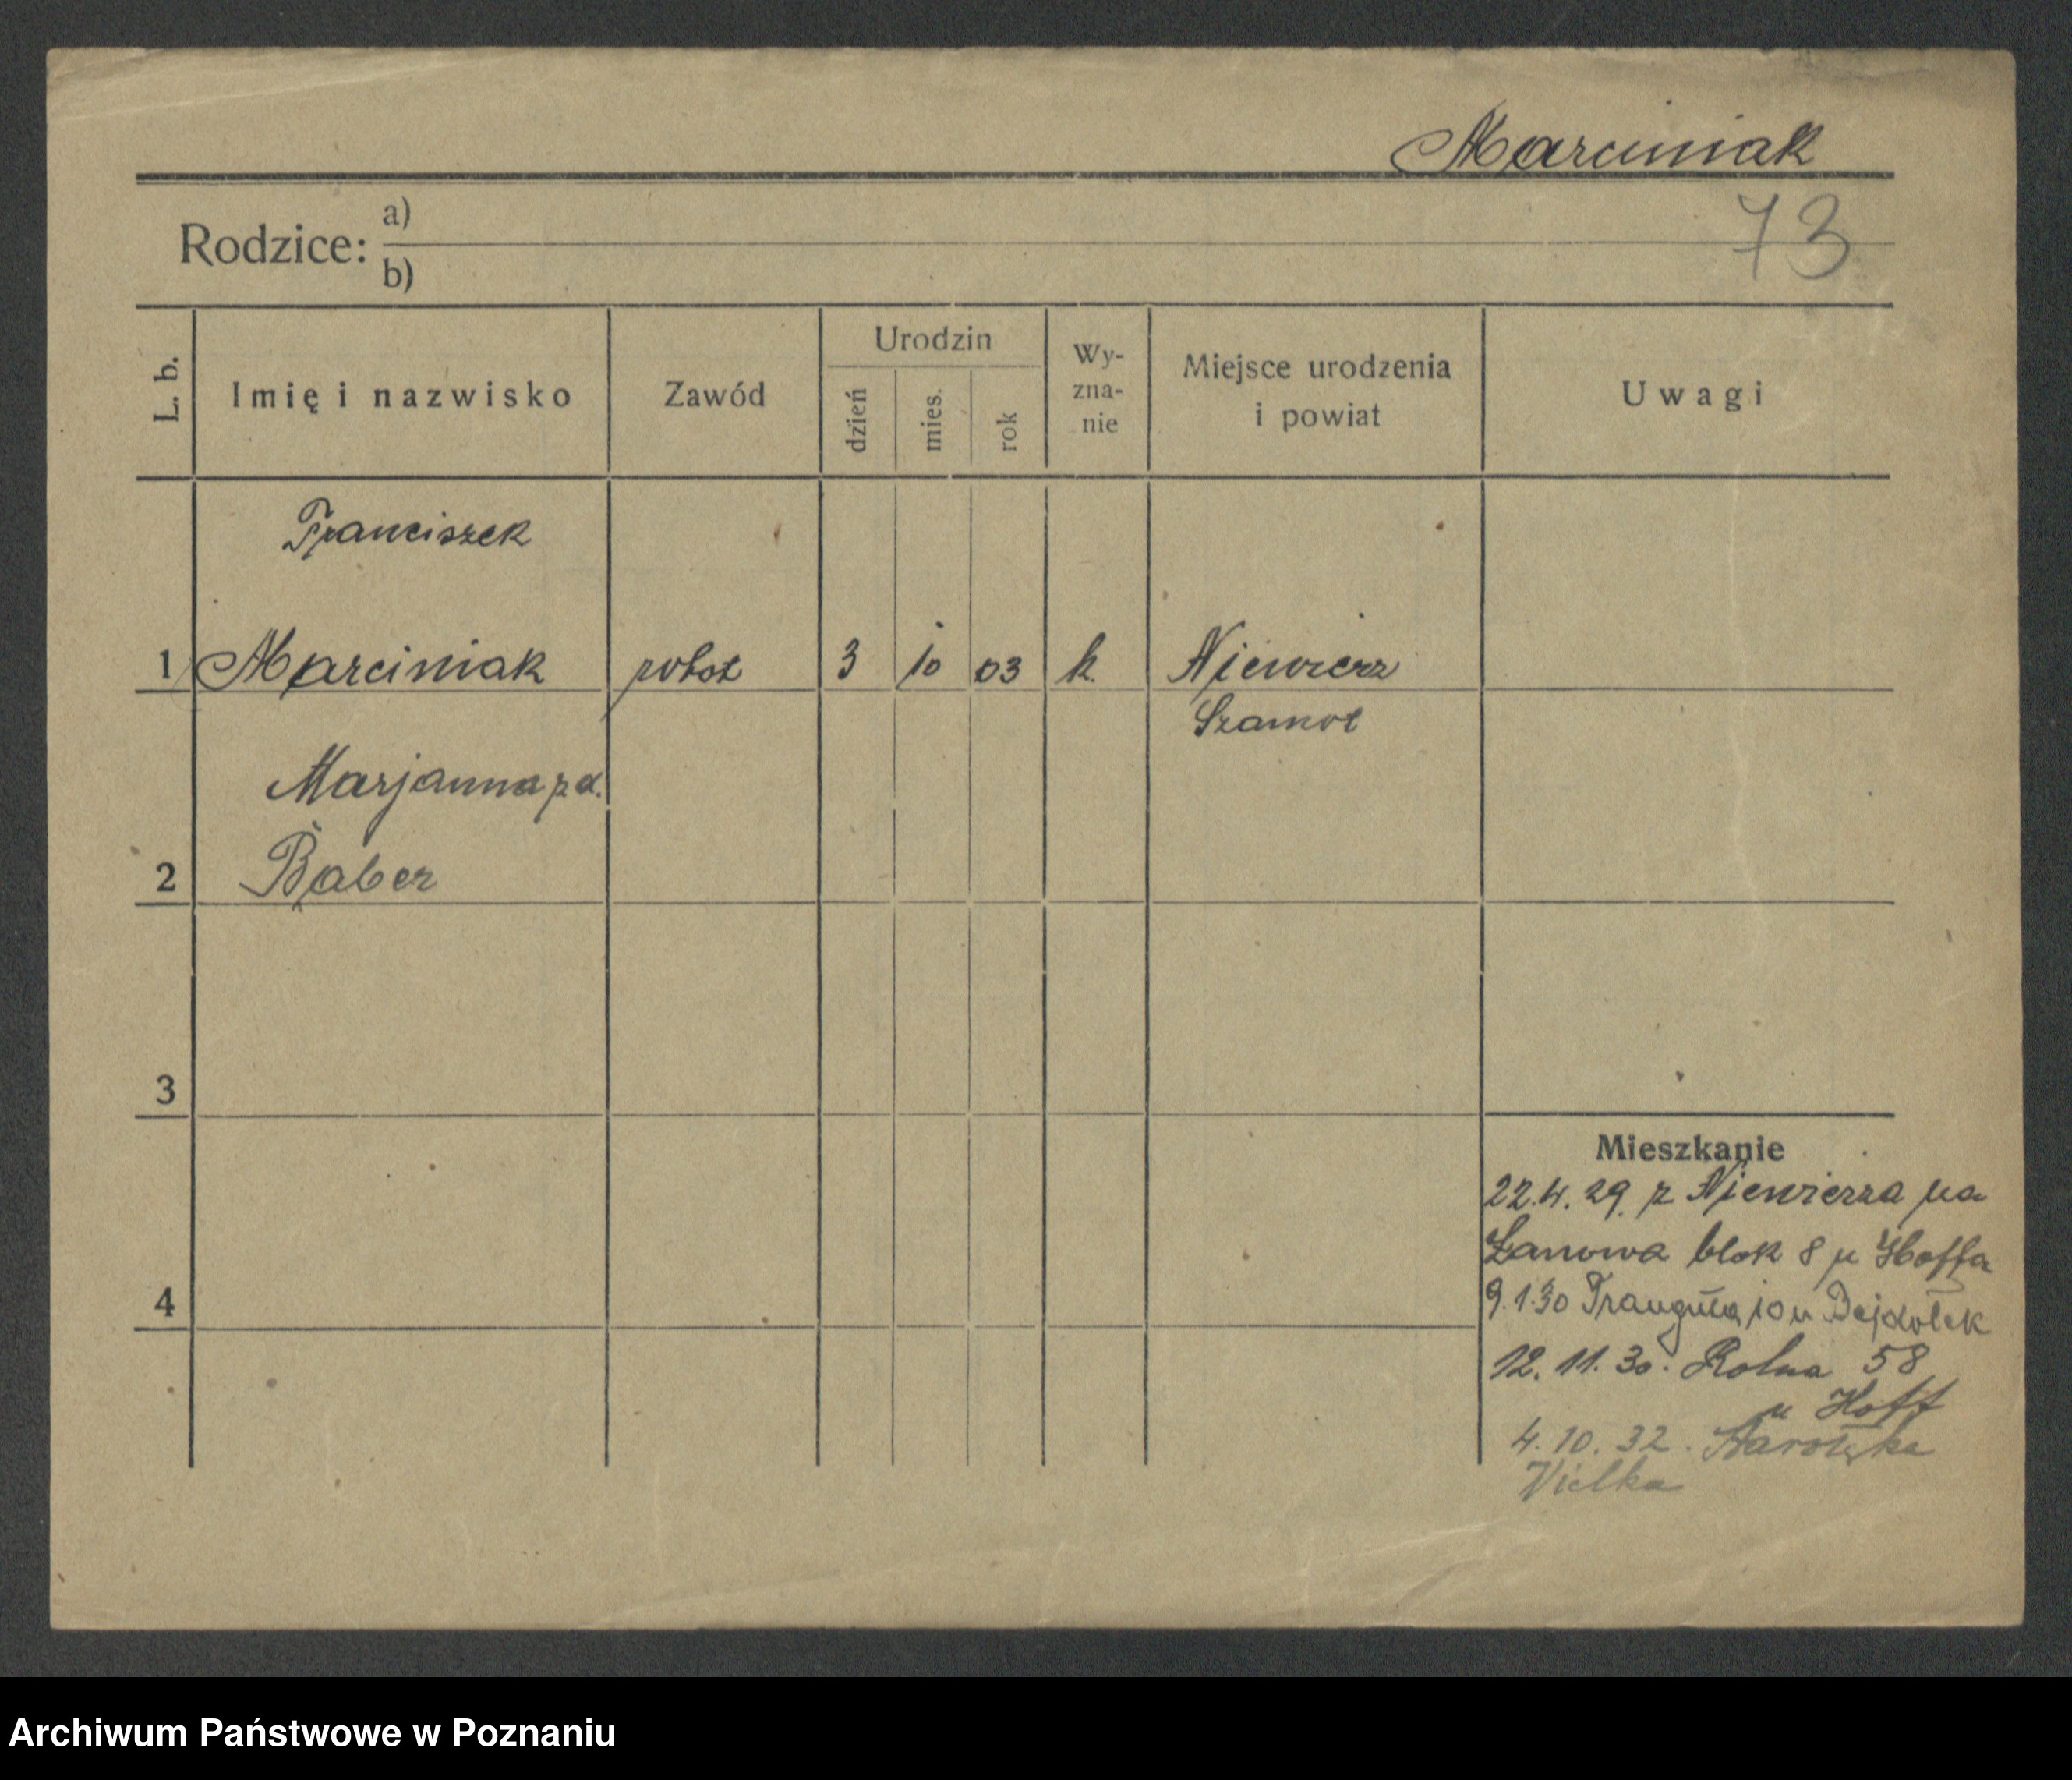 Marciniak
73
Rodzice: a)
b)
L. b.
Imię i nazwisko
Zawód
Urodzin
dzień
mies.
rok
Wy-
zna-
nie
Miejsce urodzenia
i powiat
Uwagi
Franciszek
1 Marciniak robot 3 10 03 k. Niewierz
Szamot
Marjanna zd.
2 Baber
3
4
Mieszkanie
22.4.29. z Niewierza na
Łanowa blok 8 u Hoffa
9.1.30 Traugutta 10 u
12. 11. 30. Rolna 58
u Hoff
4. 10. 32. Starołęka
Wielka
Archiwum Państwowe w Poznaniu